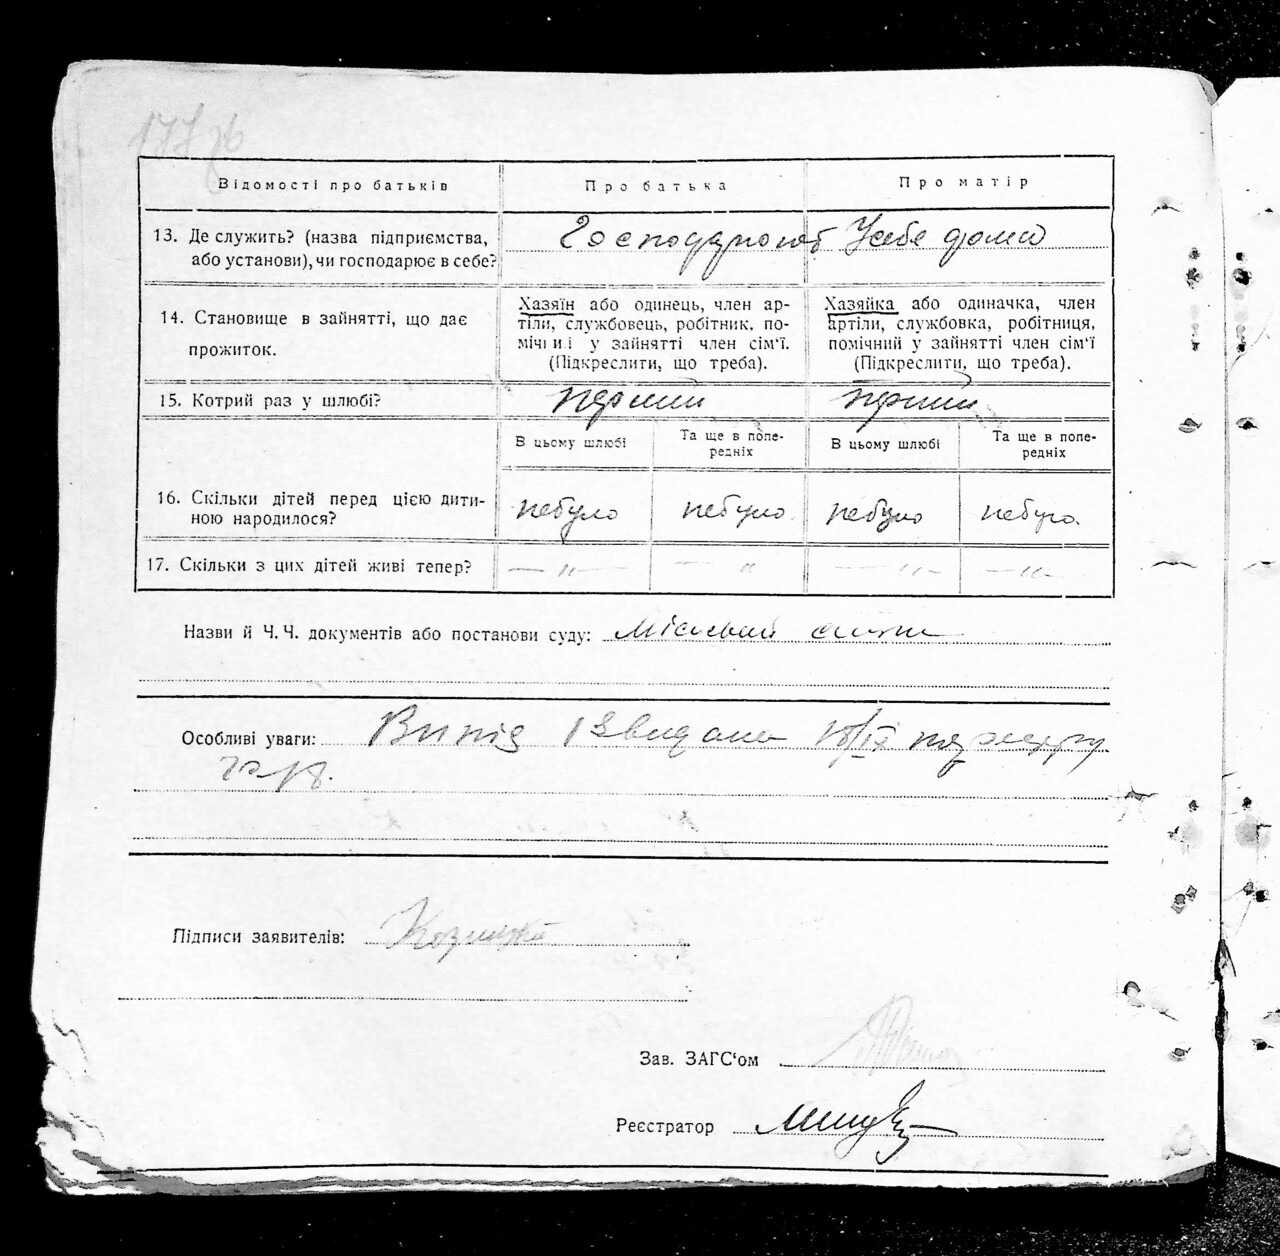 177 зв
Відомості про батьків
Про батька
Про матір
13. Де служить? (назва підприємства,
або установи), чи господарює в себе?
Господарюют У себе дома
14. Становище в зайнятті, що дає
прожиток.
Хазяїн або одинець, член ар-
тіли, службовець, робітник, по-
мічни і у зайнятті член сім'ї.
(Підкреслити, що треба).
Хазяйка або одиначка, член
артіли, службовка, робітниця,
помічний у зайнятті член сім'ї
(Підкреслити, що треба).
15. Котрий раз у шлюбі?
перший
перший
В цьому шлюбі
Та ще в попе-
редніх
В цьому шлюбі
Та ще в попе-
редніх
16. Скільки дітей перед цією дити-
ною народилося?
небуло
небуло
небуло
небуло.
17. Скільки з цих дітей живі тепер?
— " —
— "
— " —
— " —
Назви й Ч.Ч. документів або постанови суду:
Особливі уваги: Випіс
Підписи заявителів:
Зав. ЗАГС'ом
Реєстратор